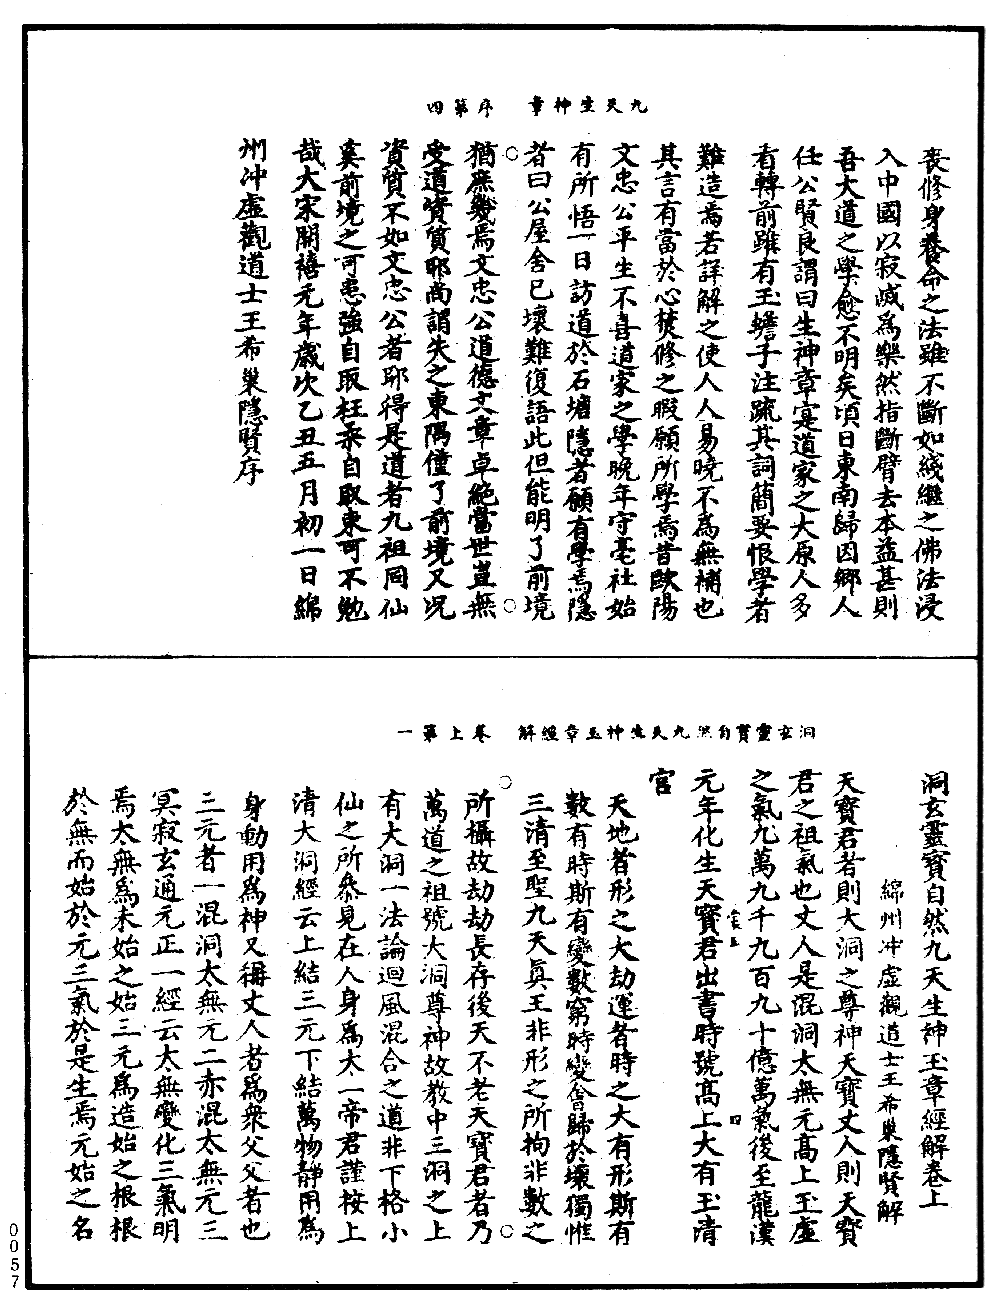 九天生神章　序第四
喪修身養命之法雖不斷如綫繼之佛法浸
入中國以寂滅為樂然指斷臂去本益甚則
吾大道之學愈不明矣頃日東南歸因鄉人
任公賢良謂曰生神章寔道家之大原人多
看轉前雖有玉蟾子注疏其詞簡要恨學者
難造焉若詳解之使人人易曉不為無補也
其言有當於心焚修之暇願所學焉昔歐陽
文忠公平生不喜道家之學晚年守亳社始
有所悟一日訪道於石塘隱者願有學焉隱
者曰公屋舍已壞難復語此但能明了前境
猶庶幾焉文忠公道德文章卓絕當世豈無
受道資質耶尚謂失之東隅僅了前境又況
資質不如文忠公者耶得是道者九祖同仙
奚前境之可患強自取柱柔自取束可不勉
哉大宋開禧元年歲次乙丑五月初一日綿
州冲虛觀道士王希巢隱賢序
洞玄靈寶自然九天生神玉章經解　卷上第一
洞玄靈寶自然九天生神玉章經解卷上
綿州冲虛觀道士王希巢隱賢解
天寶君者則大洞之尊神天寶丈人則天寶
君之祖氣也丈人是混洞太無元高上玉虛
之氣九萬九千九百九十億萬氣後至龍漢
元年化生天寶君出書時號高上大有玉清
宮
天地者形之大劫運者時之大有形斯有
數有時斯有變數窮時變會歸於壞獨惟
三清至聖九天真王非形之所拘非數之
所攝故劫劫長存後天不老天寶君者乃
萬道之祖號大洞尊神故教中三洞之上
有大洞一法論迴風混合之道非下格小
仙之所叅見在人身為太一帝君謹按上
清大洞經云上結三元下結萬物靜用為
身動用為神又稱丈人者為衆父父者也
三元者一混洞太無元二赤混太無元三
冥寂玄通元正一經云太無變化三氣明
焉太無為未始之始三元為造始之根根
於無而始於元三氣於是生焉元始之名
0057